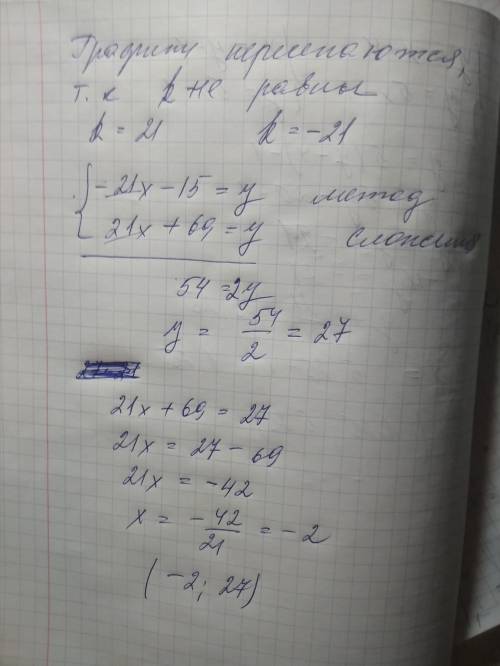 Графики пересекаются,
т.к k не равны
k = 21 k = -21
{ -21x - 15 = y метод
21x + 69 = y сложения
54 = 2y
y = 54/2 = 27
21x + 69 = 27
21x = 27 - 69
21x = -42
x = -42/21 = -2
(-2; 27)